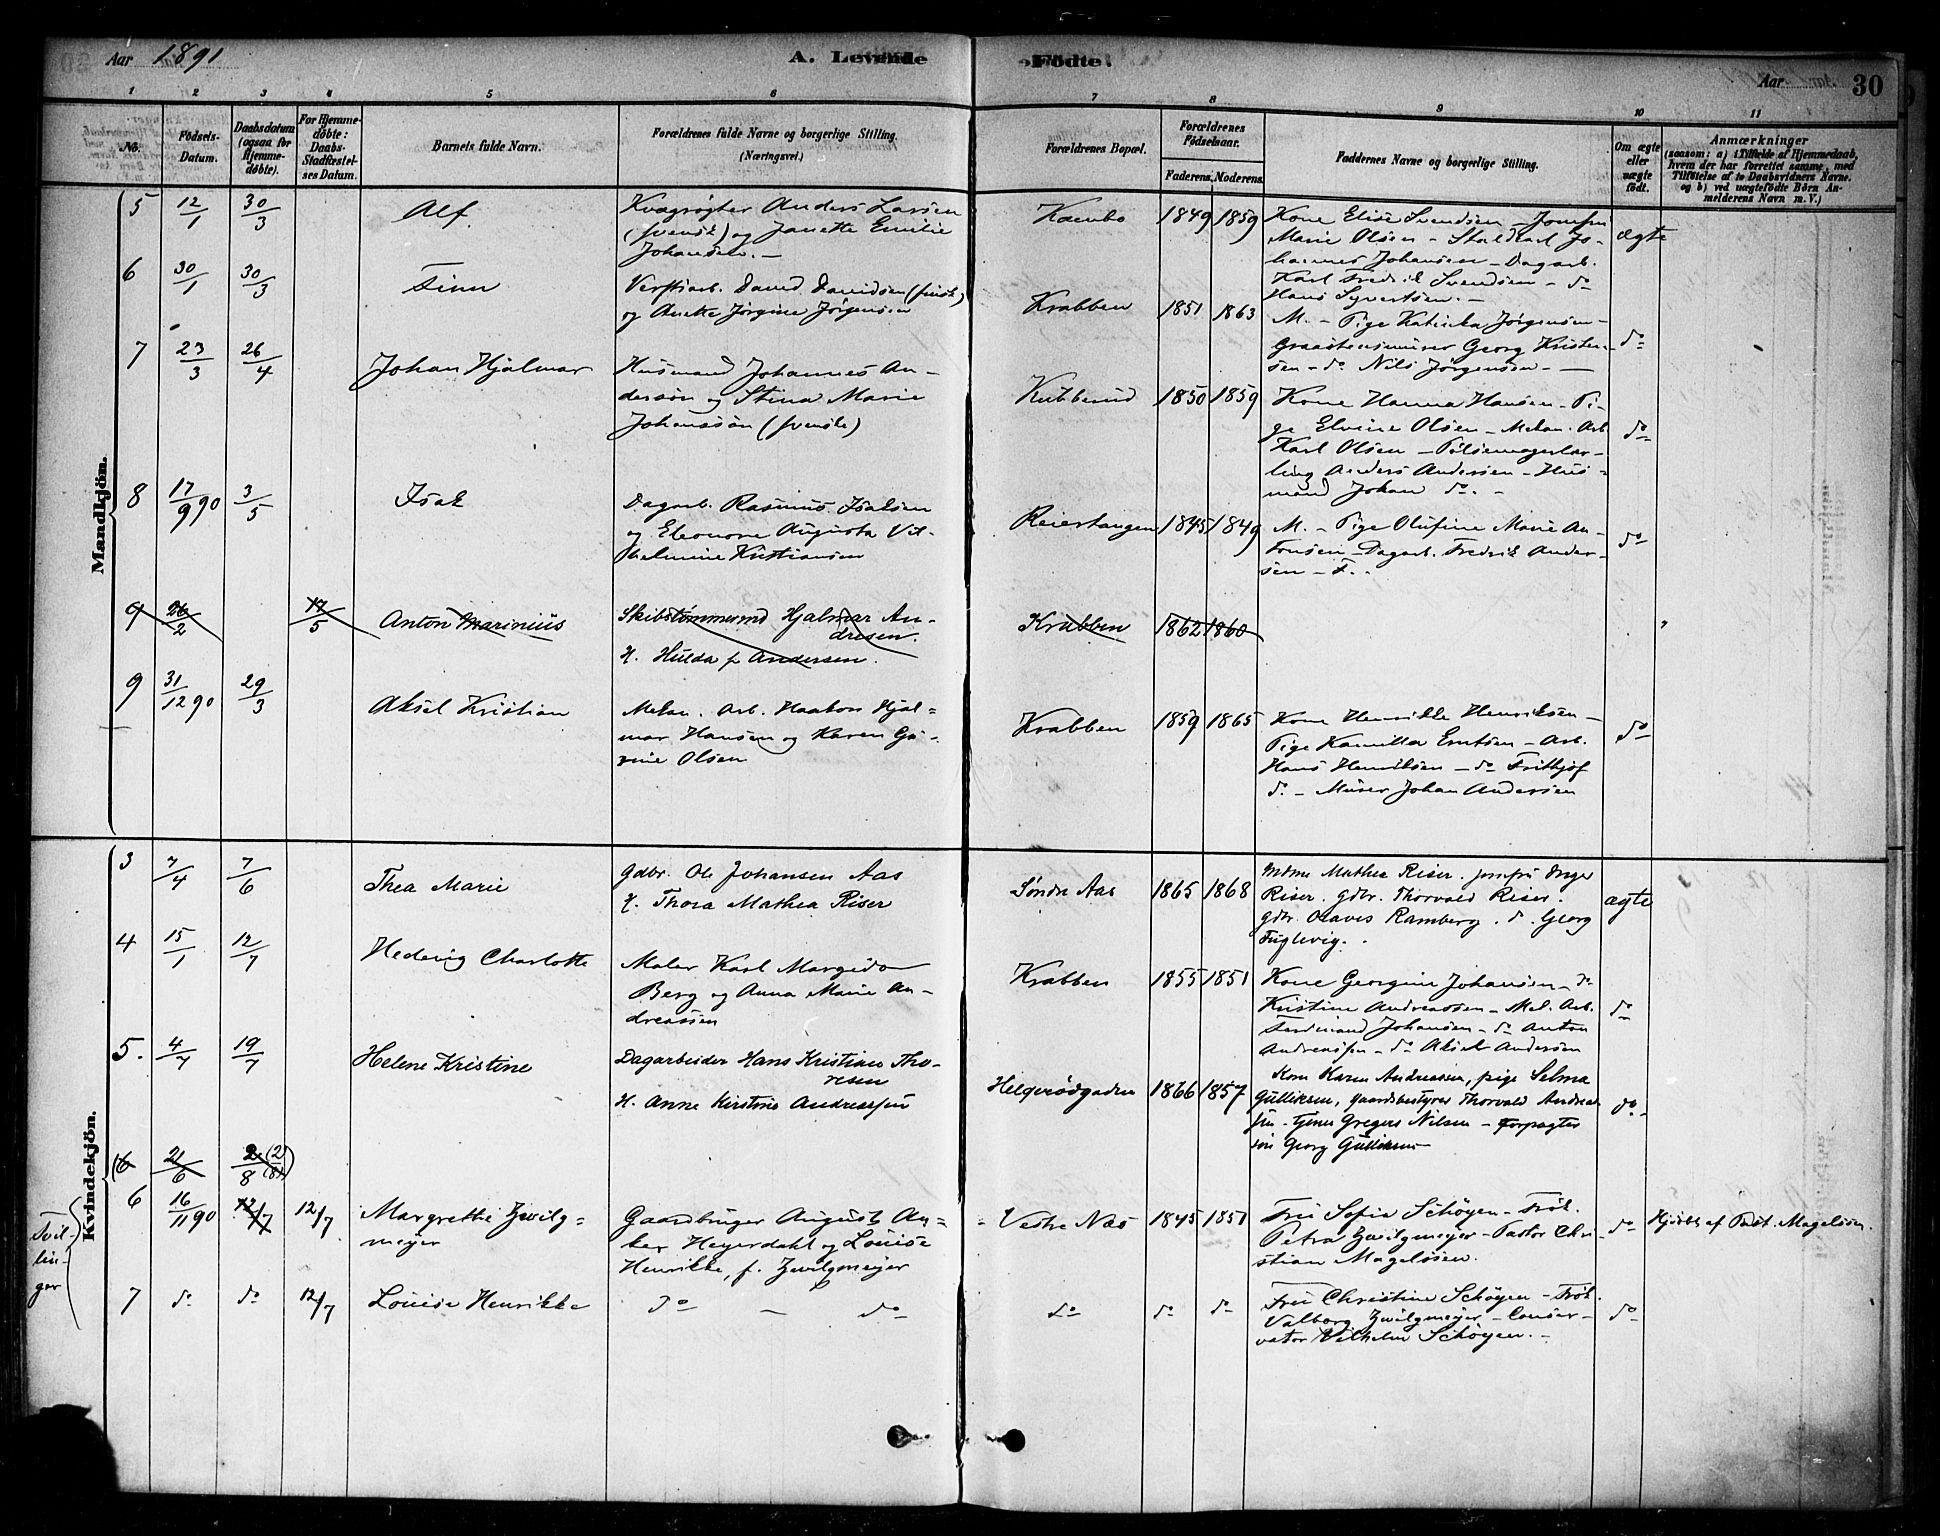 Aar 1891
A. Levende
Fødte.
Aar
30
1 2 3 4 5 6 7 8 9 10 11
No.
Fødsels-Datum.
Daabsdatum (ogsaa for Hjemmedøbte).
For Hjemmedøbte: Daabs-Stadfæstelses Datum.
Barnets fulde Navn.
Forældrenes fulde Navne og borgerlige Stilling. (Næringsvei.)
Forældrenes Bopæl.
Forældrenes Fødselsaar.
Faderens. Moderens.
Faddernes Navne og borgerlige Stilling.
Om ægte eller uægte født.
Anmærkninger
(saasom: a) i Tilfælde af Hjemmedaab, hvem der har forrettet samme, med Tilføielse af to Daabsvidners Navne, og b) ved uægtefødte Børn Anmelderens Navn m. V.)
Mandkjön.
5 12/1 30/3 Alf.
Kvægrøgter Anders Larsen
(svensk) og Janette Emilie
Johansen. —
Kambo 1849 1859
Kone Elise Svendsen - Jomfru
Marie Olsen - Staldkarl Jo-
hannes Johansen - Dagarb.
Karl Fredrik Svendsen - do
Hans Syvertsen. -
ægte
6 30/1 30/3 Finn
Verftsarb. David Davidsen (finsk)
og Anette Jørgine Jørgensen
Krabben 1851 1863
M. - Pige Katinka Jørgensen -
Graastensmurer Georg Kristen-
sen - do Nils Jørgensen. -
do
7 23/3 26/4 Johan Hjalmar
Husmand Johannes An-
dersson og Stina Marie
Johansson (svensk)
Kubberud 1850 1859
Kone Hanna Hansen - Pi-
ge Elvine Olsen - Mekan. Arb.
Karl Olsen - Pølsemagerlær-
ling Anders Andersen - Hus-
mand Johan do. -
do
8 17/9 90 3/5 Isak
Dagarb. Rasmus Isaksen
og Eleonore Augusta Vil-
helmine Kristiansen
Reiertangen 1845 1849
M. - Pige Olufine Marie An-
tonsen - Dagarb. Fredrik Ander-
sen - F.
do
9 26/2 17/5 Anton Marinius
Skibstømmermd Hjalmar An-
dresen.
H. Hulda f. Andersen.
Krabben 1862 1860
9 31/12 90 29/3 Aksel Kristian
Mekan. Arb. Haakon Hjal-
mar Hansen og Karen Gu-
rine Olsen
Krabben 1859 1865
Kone Henrikke Henriksen -
Pige Kamilla Erntsen - Arb.
Hans Henriksen - do Frithjof
do. - Murer Johan Andersen
do
Kvindekjön.
3 7/4 7/6 Thea Marie
Gdbr. Ole Johansen Aas
H. Thora Mathea Riser
Søndre Aas 1865 1868
Mdme Mathea Riser. jomfru Inger
Riser. gdbr. Thorvald Riser.
gdbr. Olaves Ramberg. d. Georg
Fuglevig.
ægte
4 15/1 12/7 Hedevig Charlotte
Maler Karl Margido
Berg og Anna Marie An-
dreassen
Krabben 1855 1851
Kone Georgine Johansen - do
Kristine Andreassen - Mek. Arb.
Ferdinand Johansen - do Anton
Andreassen - do Aksel Andersen
do
5. 4/7 19/7 Helene Kristine
Dagarbeider Hans Kristian Tho-
resen
H. Anne Kirstine Andreassen
Helgerødgaden 1866 1857
Kone Karen Andreassen, pige Selma
Gulliksen, gaardsbestyrer Thorvald Andreas-
sen - tjener Gregers Nilsen - Forpagter
søn Georg Gulliksen
do
(6 21/6 2/8 (2/8))
Tvil-
lin-
ger
6 16/11 90 12/7 12/7 Margrethe Zwilg=
meyer
Gaardbruger August An-
ker Heyerdahl og Louise
Henrikke, f. Zwilgmeyer
Vestre Næs 1845 1851
Fru Sofie Schøyen - Frøk.
Petra Zwilgmeyer - Pastor Chri-
stian Magelssen.
do
Hjdøbt af Past. Magelssen.
7 do do 12/7 Louise Henrikke
do — do
do do do
Fru Christine Schøyen - Frøk.
Valborg Zwilgmeyer - Conser-
vator Vilhelm Schøyen. -
do